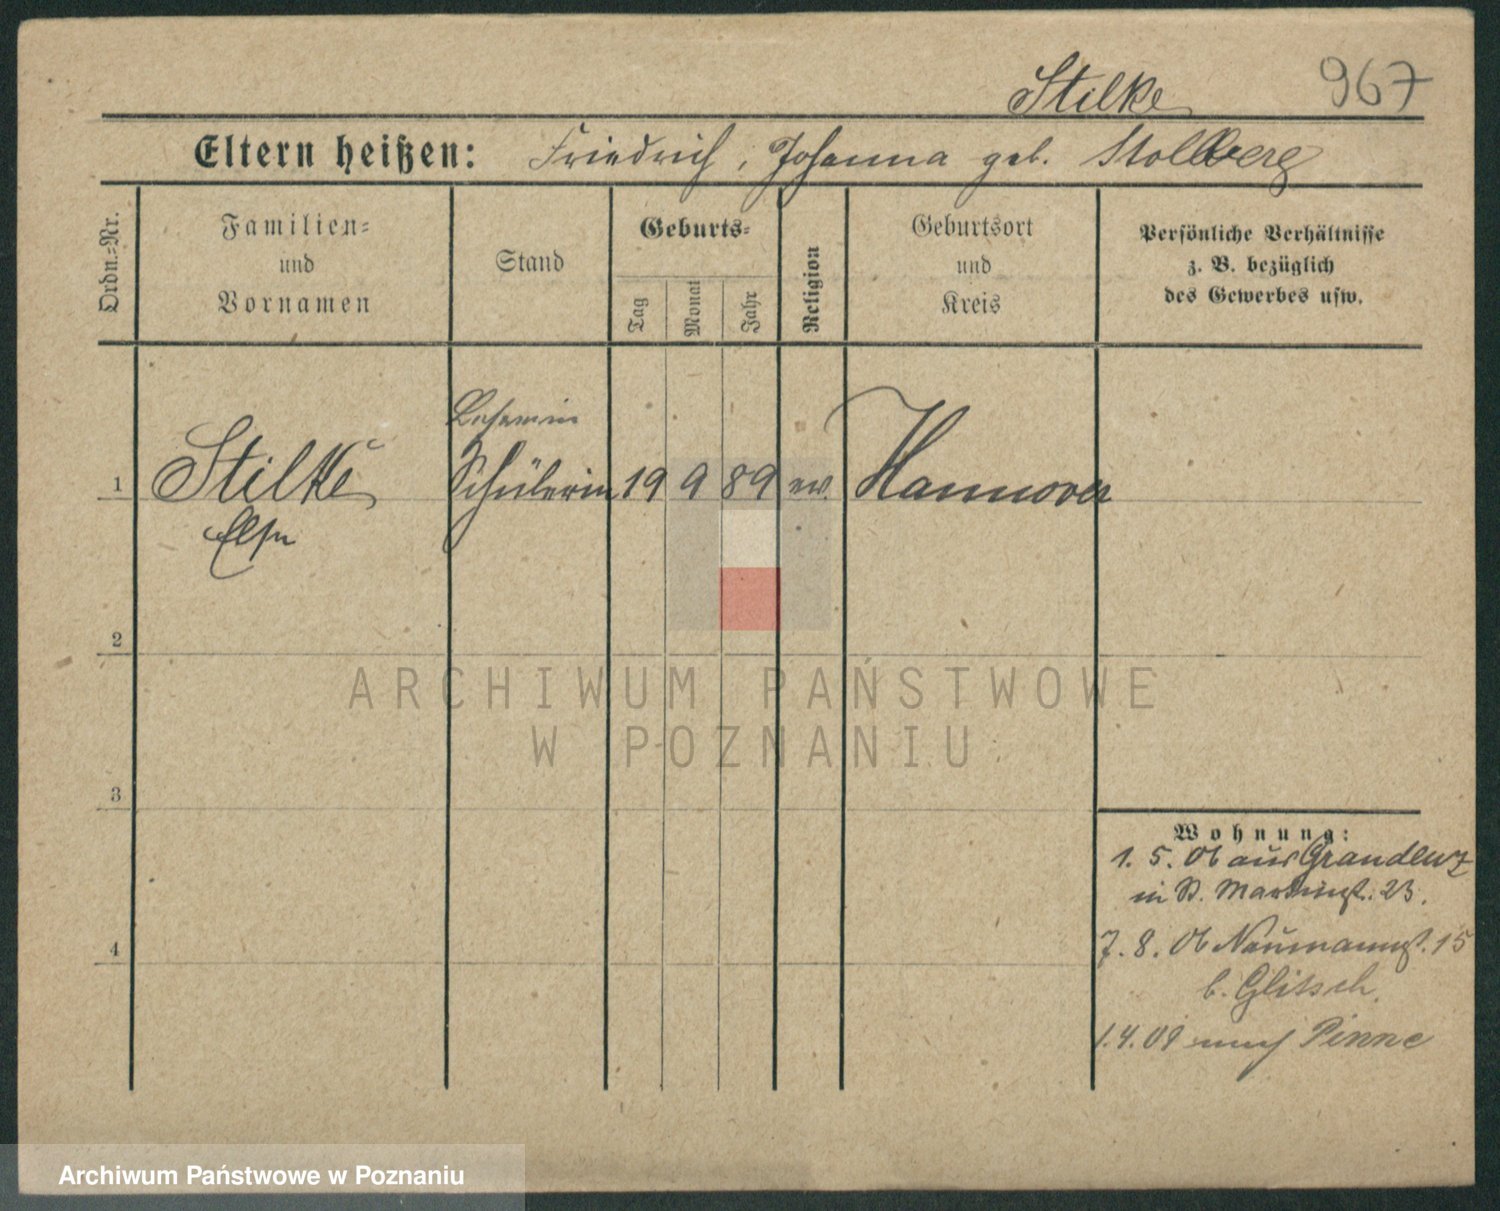 Stilke 967
Eltern heißen: Friedrich, Johanna geb. Stollberg
Ordn.-Nr.
Familien-
und
Vornamen
Stand
Geburts-
Tag
Monat
Jahr
Religion
Geburtsort
und
Kreis
Persönliche Verhältnisse
z. B. bezüglich
des Gewerbes usw.
Lehrerin
1 Stilke Schülerin 19 9 89 ev. Hannover
Else
2
ARCHIWUM PAŃSTWOWE
W POZNANIU
3
Wohnung:
1. 5. 06 aus Graudenz
in St. Martinst. 23.
7. 8. 06 Naumannst. 15
4
b. Glitsch.
1.4.09 nach Pinne
Archiwum Państwowe w Poznaniu